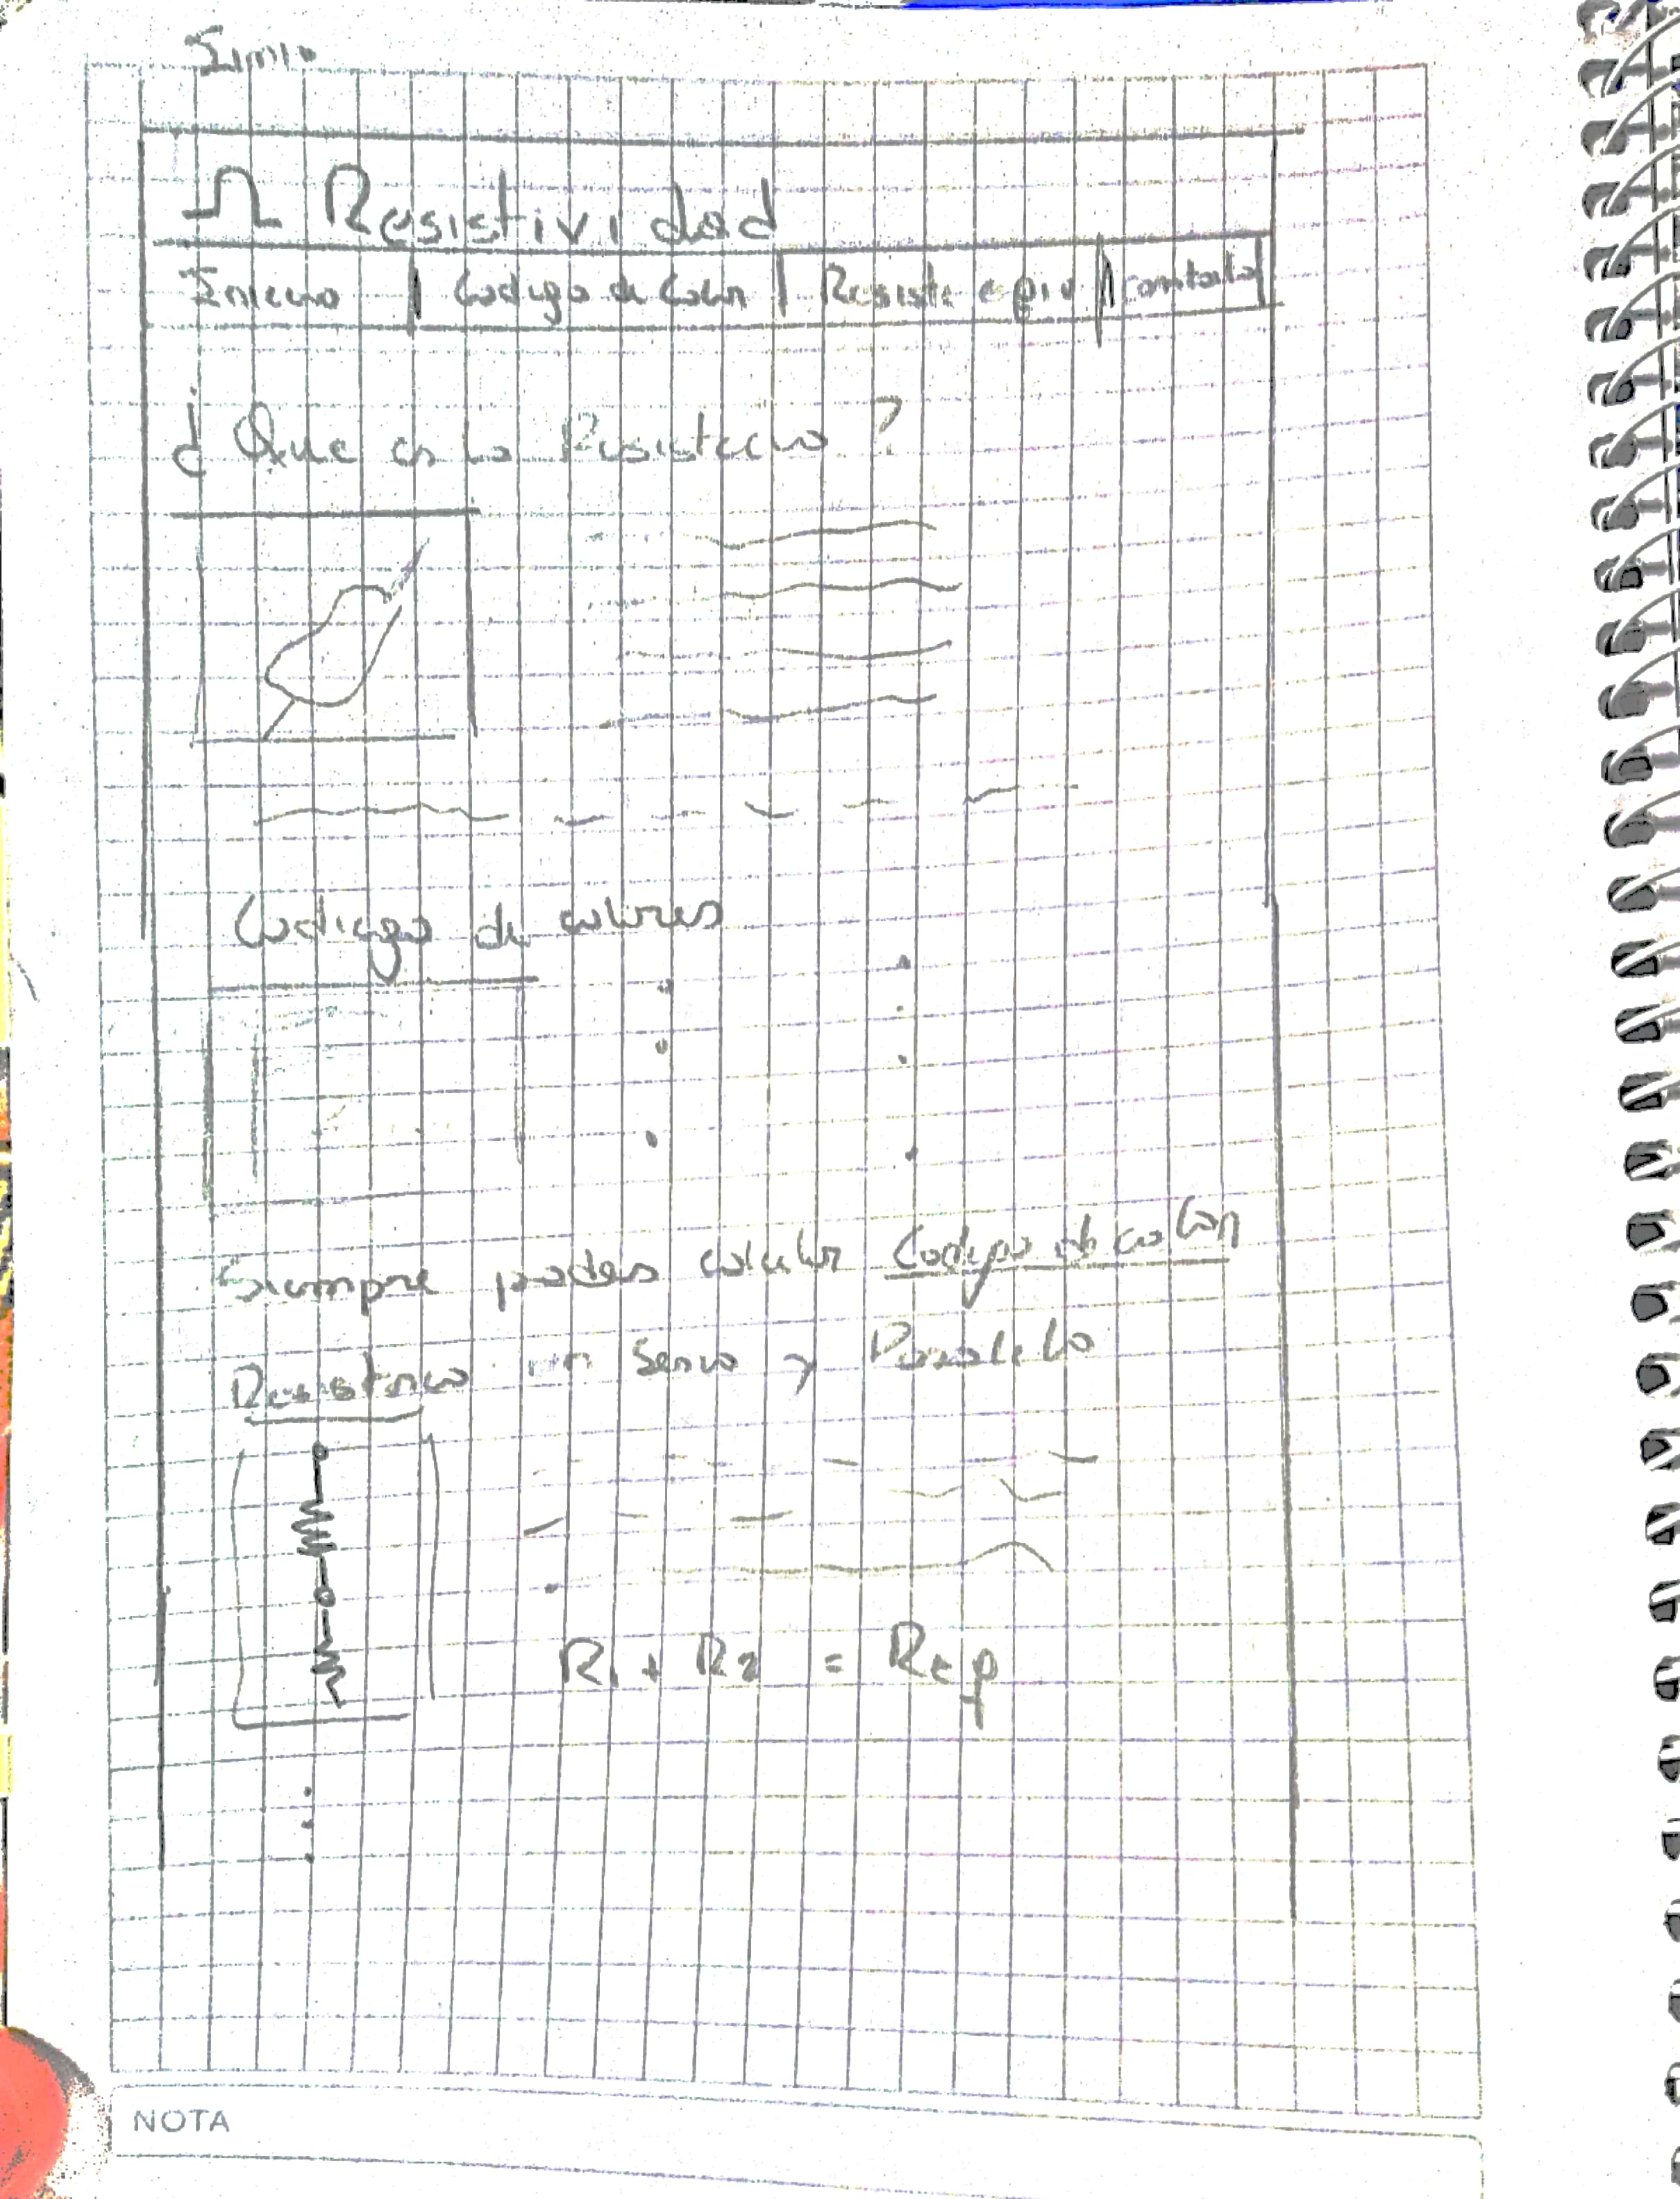 Ω Resistividad
Inicio | Codigo de Color | Resiste eqiv | contacto
¿Que es la Resistecia?
Codiago de colores
Siempre podes calcular Codigo de color
Resistencia en Serie y Paralelo
R1 + R2 = Req
NOTA